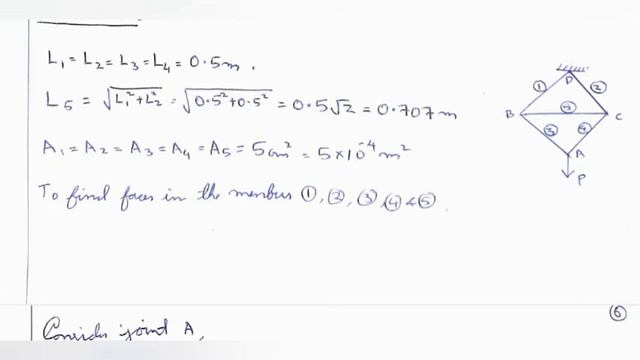 L₁ = L₂ = L₃ = L₄ = 0.5m.
L₅ = √(L₁² + L₂²) = √(0.5² + 0.5²) = 0.5√2 = 0.707m
A₁ = A₂ = A₃ = A₄ = A₅ = 5cm² = 5×10⁻⁴ m²
To find forces in the members ①, ②, ③, ④ & ⑤.
D
① ②
B ⑤ C
③ ④
A
P
⑥
Consider joint A,